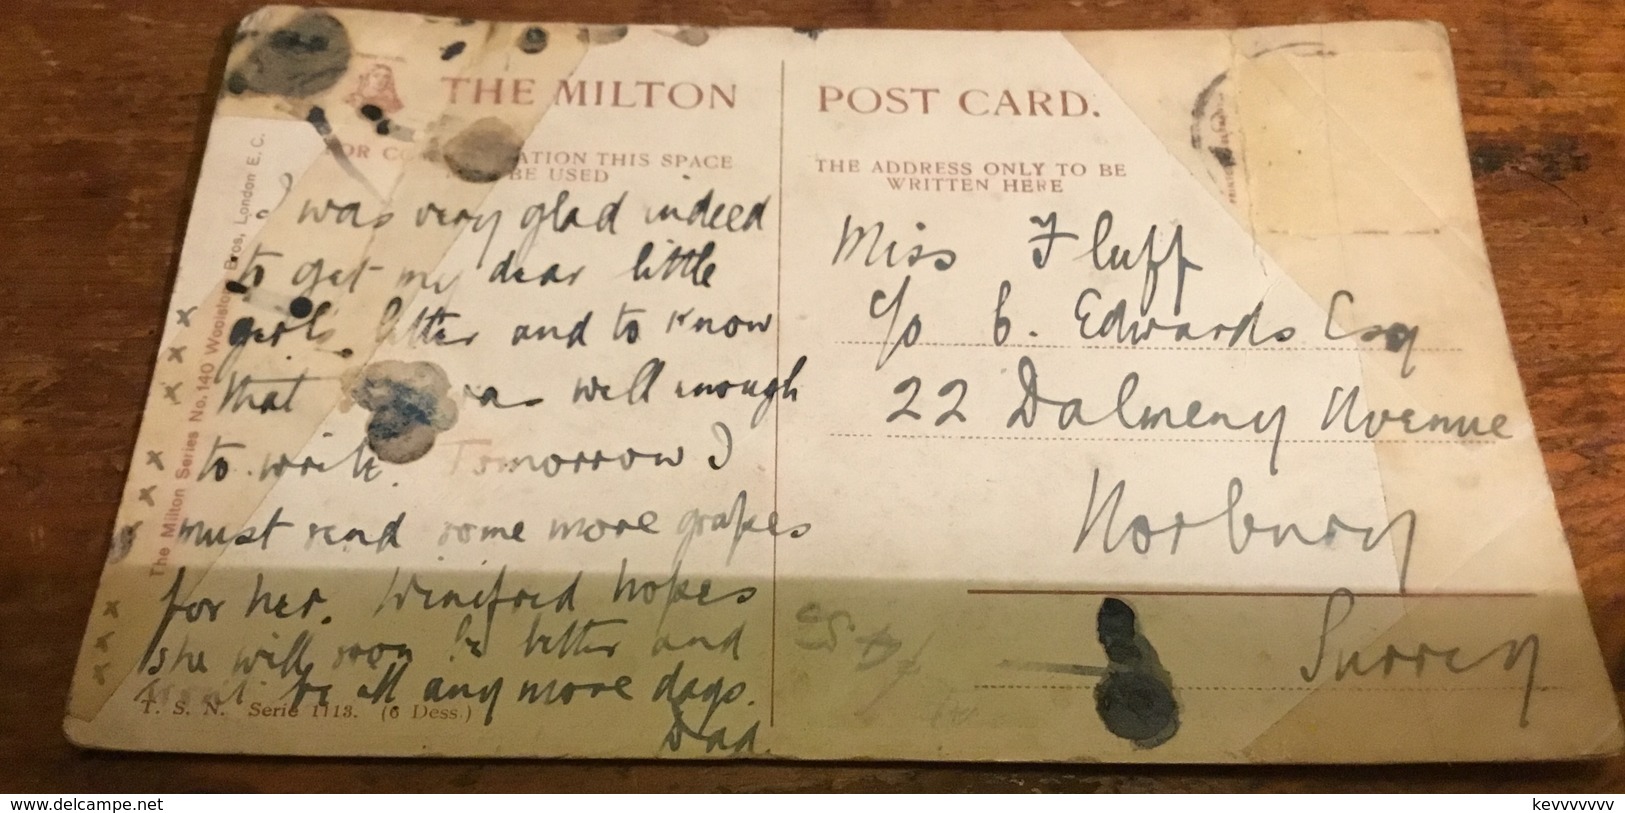 THE MILTON POST CARD.
FOR CO ATION THIS SPACE
BE USED
THE ADDRESS ONLY TO BE
WRITTEN HERE
I was very glad indeed
to get my dear little
girl's letter and to know
that was well enough
to write. Tomorrow I
must send some more grapes
for her. Winifred hopes
she will soon be better and
be ill any more days.
Dad.
x x x
x x x
x x x
The Milton Series No. 140 Woolstone Bros, London E.C.
T. S. N. Serie 1113. (6 Dess.)
Miss Fluff
c/o E. Edwards Esq
22 Dalmeny Avenue
Norbury
Surrey
www.delcampe.net
kevvvvvvv